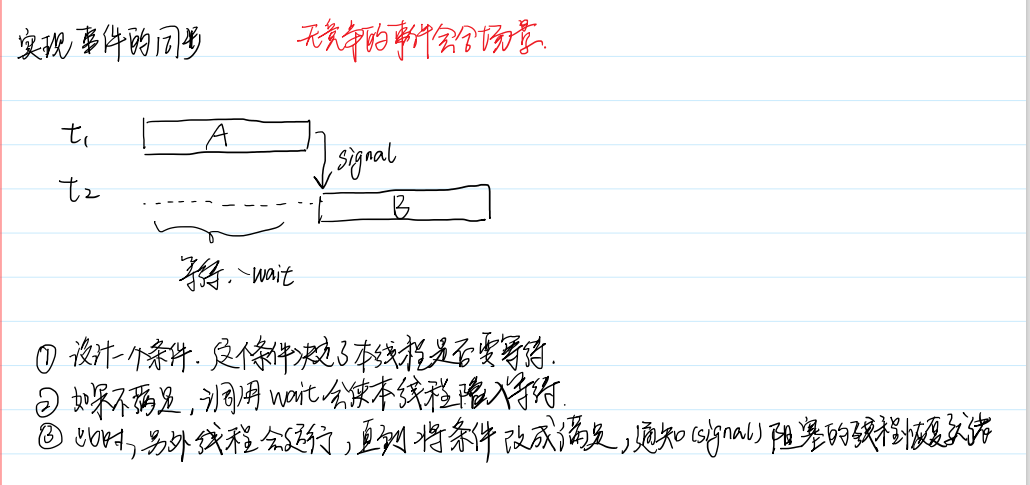 实现事件的同步 无竞争的事件会合场景.
t₁ A
signal
t₂ B
等待.、wait
① 设计一个条件.这个条件决定了本线程是否要等待.
② 如果不满足,调用wait会使本线程陷入等待.
③ 此时,另外线程会运行,直到将条件改成满足,通知(signal)阻塞的线程恢复就绪